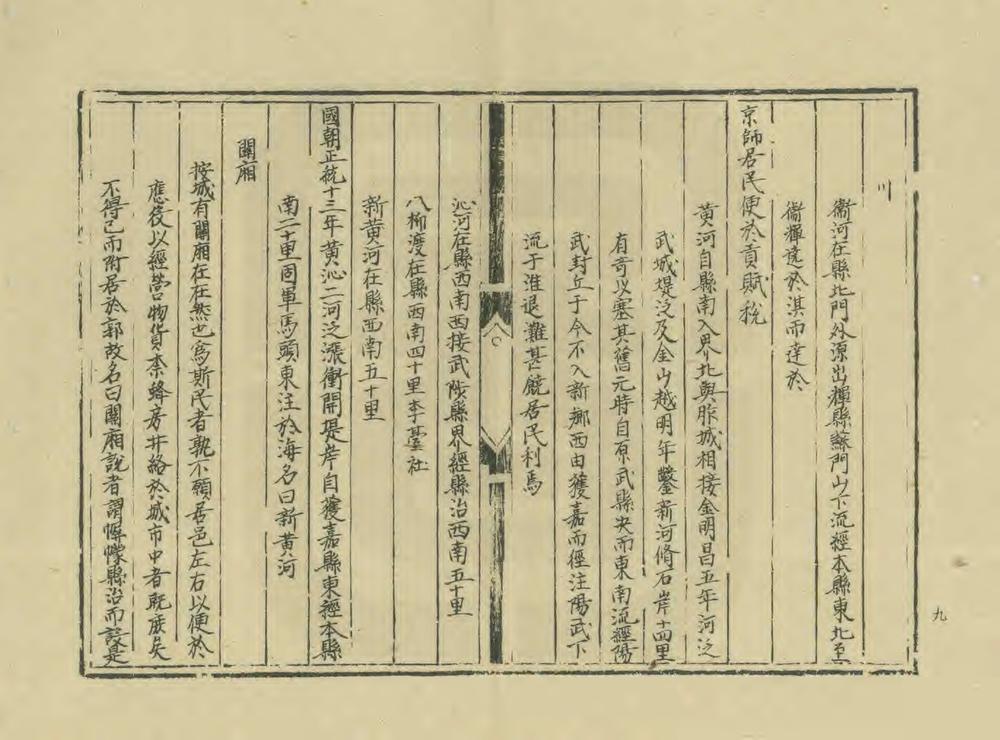 川
衞河在縣北門外源出輝縣蘇門山下流經本縣東北至
衞輝達於淇而達於
京師居民便於貢賦稅
黃河自縣南入界北與胙城相接金明昌五年河泛
武城堤泛及金山越明年鑿新河脩石岸十四里
有奇以塞其舊元時自原武縣决而東南流經陽
武封丘于今不入新鄉西由獲嘉而徑注陽武下
流于淮退灘甚饒居民利焉
沁河在縣西南西接武陟縣界經縣治西南五十里
八柳渡在縣西南四十里李臺社
新黃河在縣西南五十里
國朝正統十三年黃沁二河泛漲衝開堤岸自獲嘉縣東經本縣
南二十里同軍馬頭東注於海名曰新黃河
關廂
按城有關廂在在然也爲斯民者孰不願居邑左右以便於
應役以經營物貨柰蜂房井絡於城市中者既庶矣
不得已而附居於郭故名曰關廂說者謂帡幪縣治而設是
九